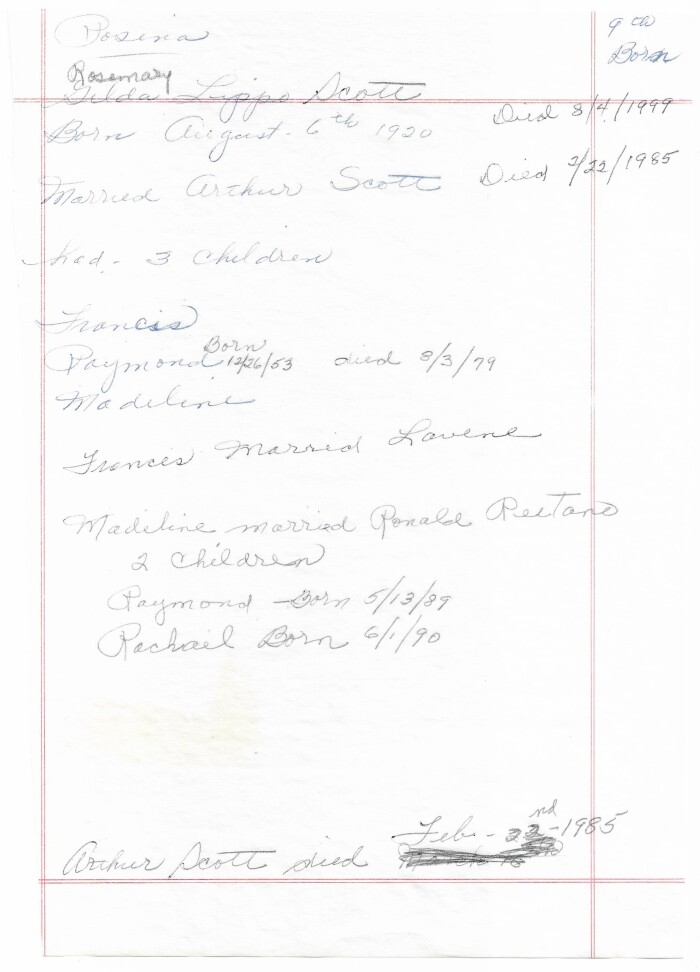 Rosina
9th
Born
Rosemary
Gilda Lippo Scott
Born August - 6th 1920 Died 8/4/1999
Married Arthur Scott Died 2/22/1985
had - 3 Children
Francis
Raymond Born 12/26/53 died 8/3/79
Madeline
Francis Married Lavene
Madeline married Ronald Reetano
2 Children
Raymond - Born 5/13/89
Rachael Born 6/1/90
Feb. - 22nd - 1985
Arthur Scott died